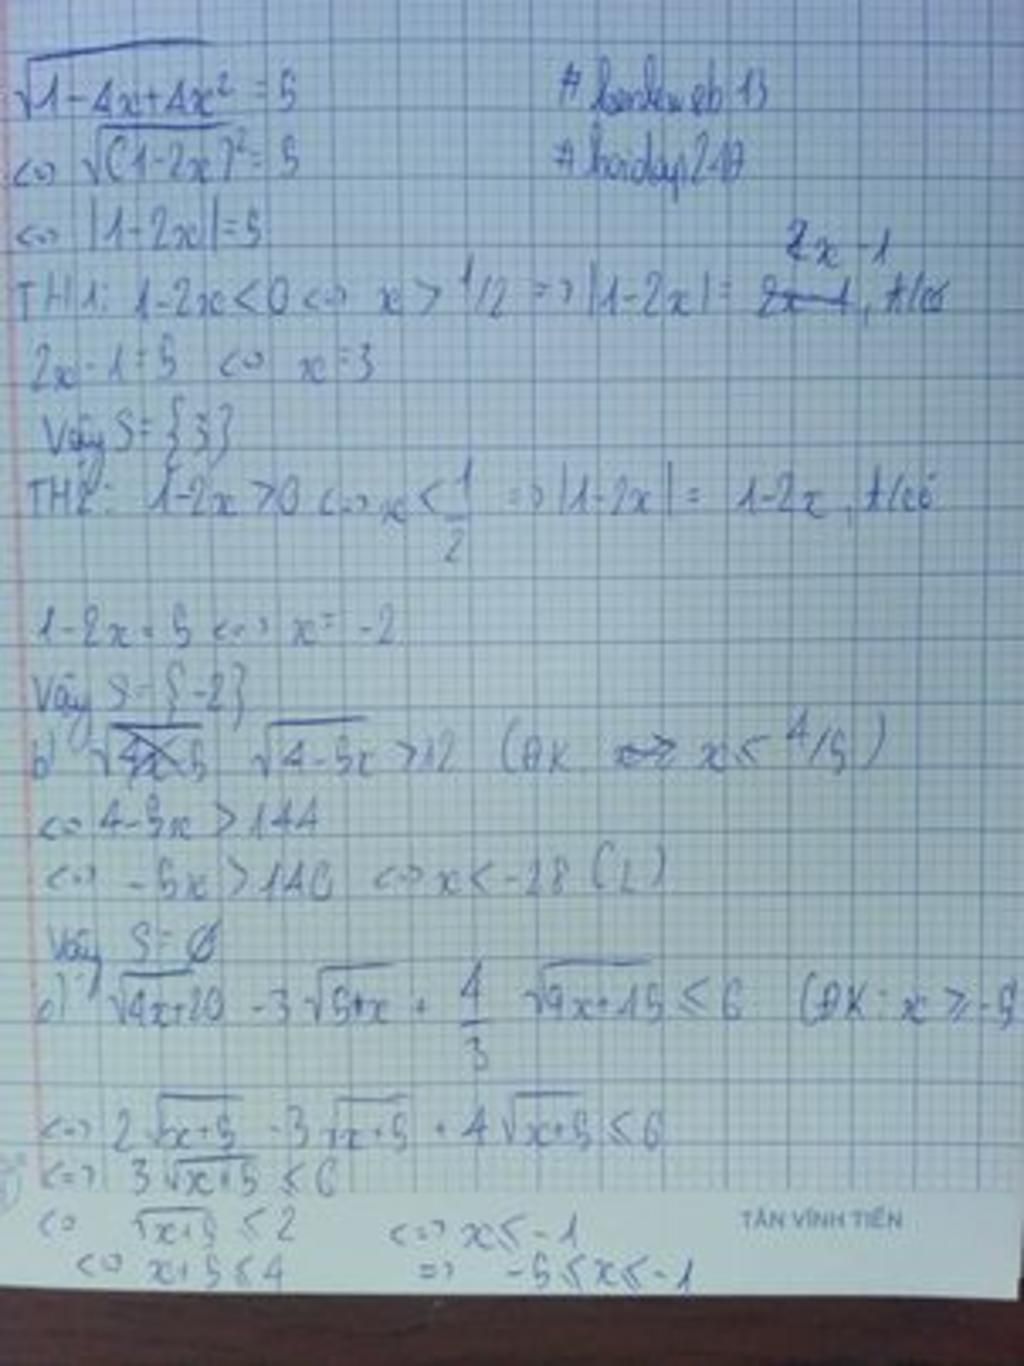 √(1-4x+4x²) = 5
<=> √(1-2x)² = 5
<=> |1-2x| = 5
TH1: 1-2x < 0 <=> x > 1/2 => |1-2x| = 2x-1, t/có
2x-1 = 5 <=> x = 3
Vậy S = {3}
TH2: 1-2x > 0 <=> x < 1/2 => |1-2x| = 1-2x, t/có
1-2x = 5 <=> x = -2
Vậy S = {-2}
b) √(4-5x) > 12 (ĐK <=> x ≤ 4/5)
<=> 4-5x > 144
<=> -5x > 140 <=> x < -28 (L)
Vậy S = ∅
c) √(4x+20) - 3√(5+x) + 4/3 √(9x+45) ≤ 6 (ĐK: x ≥ -5
<=> 2√(x+5) - 3√(x+5) + 4√(x+5) ≤ 6
<=> 3√(x+5) ≤ 6
<=> √(x+5) ≤ 2 <=> x ≤ -1
<=> x+5 ≤ 4 => -5 ≤ x ≤ -1
TÂN VĨNH TIẾN